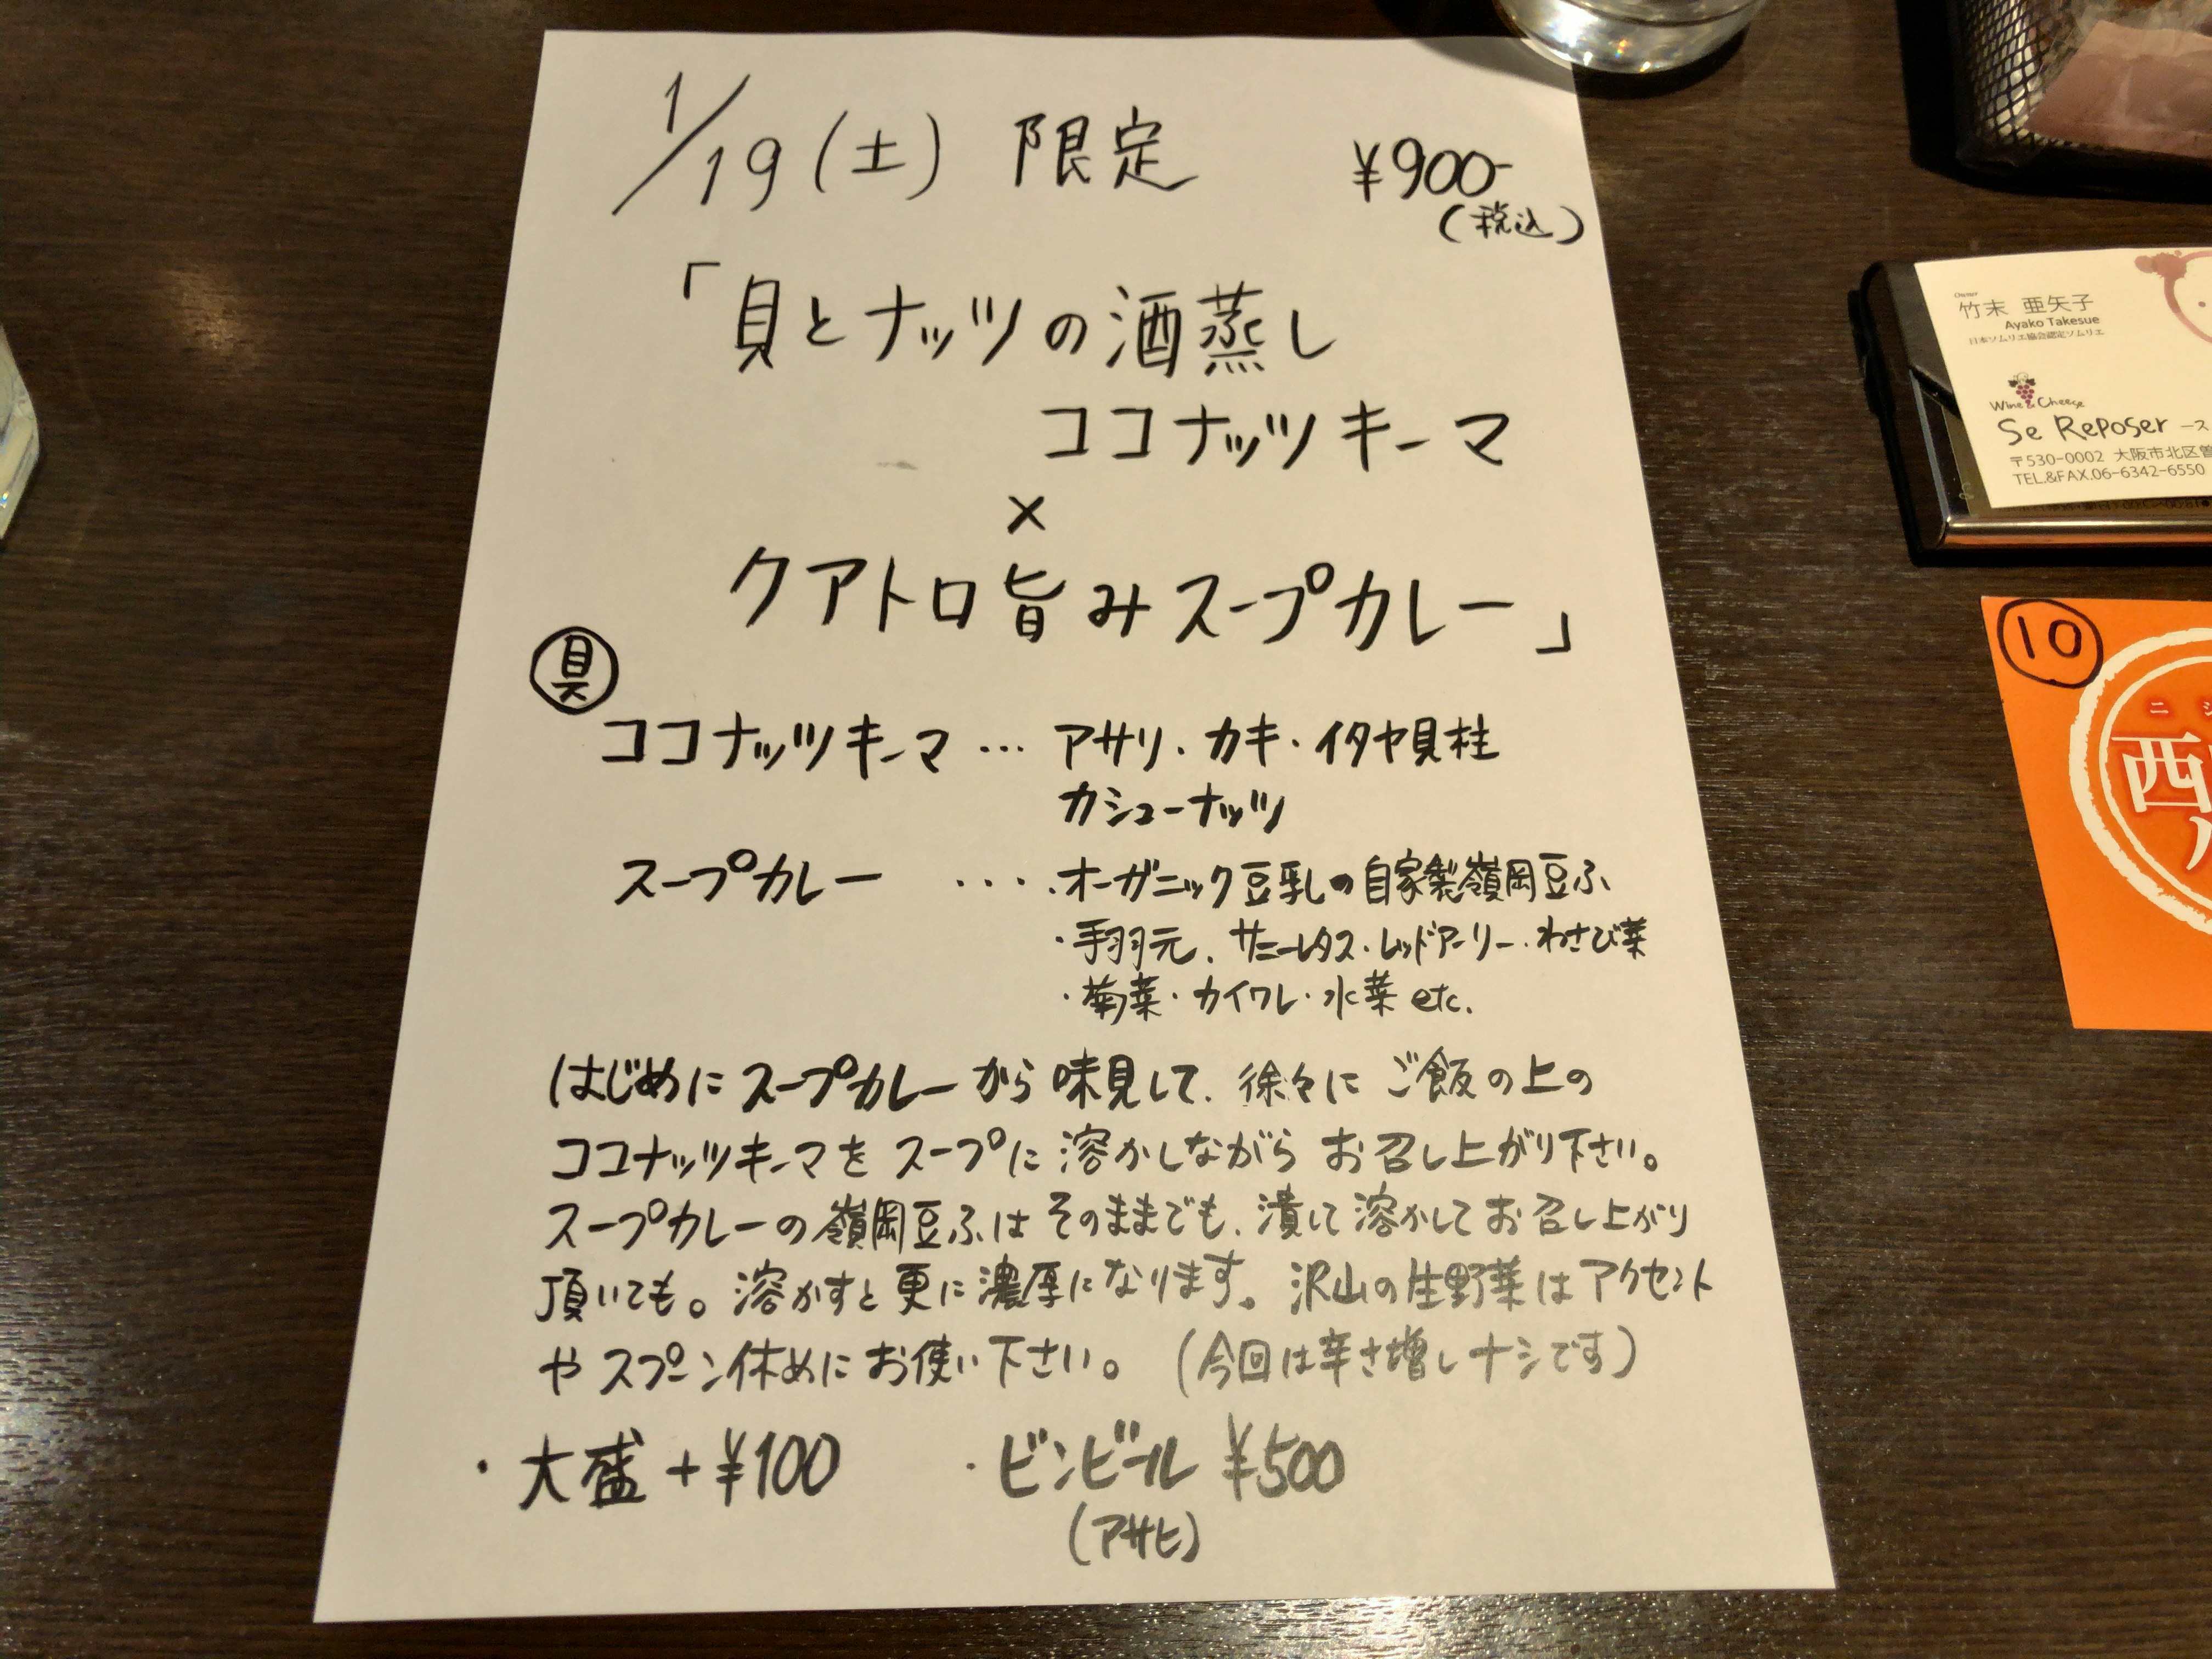 1/19(土) 限定 ¥900-
(税込)
「貝とナッツの酒蒸し
ココナッツキーマ
×
クアトロ旨みスープカレー」
具
ココナッツキーマ … アサリ・カキ・イタヤ貝柱
カシューナッツ
スープカレー ・・・・オーガニック豆乳の自家製嶺岡豆ふ
・手羽元、サニーレタス・レッドアーリー・わさび菜
・菊菜・カイワレ・水菜 etc.
はじめにスープカレーから味見して、徐々にご飯の上の
ココナッツキーマをスープに溶かしながらお召し上がり下さい。
スープカレーの嶺岡豆ふはそのままでも、潰して溶かしてお召し上がり
頂いても。溶かすと更に濃厚になります。沢山の生野菜はアクセント
やスプーン休めにお使い下さい。(今回は辛さ増しナシです)
・大盛+¥100 ・ビンビール ¥500
(アサヒ)
Owner
竹末 亜矢子
Ayako Takesue
日本ソムリエ協会認定ソムリエ
Wine & Cheese
Se Reposer －ス
〒530-0002 大阪市北区曽
TEL.&FAX.06-6342-6550
10
ニシ
西